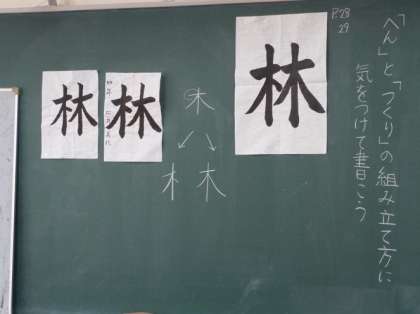 P.28
29
「へん」と「つくり」の組み立て方に
気をつけて書こう
林
木
木 木
林
林